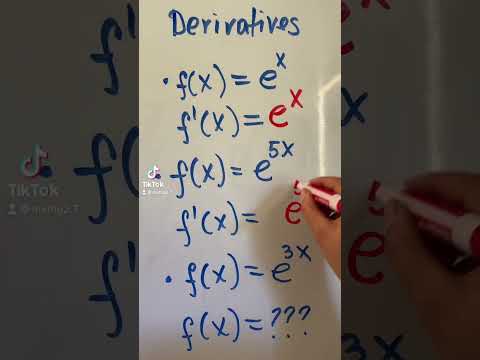 Derivatives
• f(x) = eˣ
f'(x) = eˣ
• f(x) = e⁵ˣ
f'(x) = e⁵
• f(x) = e³ˣ
f(x) = ???
TikTok
TikTok